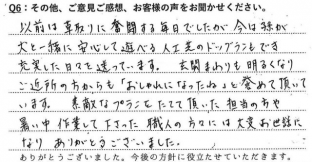 Q6：その他、ご意見ご感想、お客様の声をお聞かせください。
以前は草取りに奮闘する毎日でしたが今は孫が
犬と一緒に安心して遊べる人工芝のドッグランもでき
充実した日々を送っています。玄関まわりも明るくなり
ご近所の方からも「おしゃれになったね」と誉めて頂いて
います。素敵なプランをたてて頂いた担当の方や
暑い中作業して下さった職人の方々には大変お世話に
なりありがとうございました。
ありがとうございました。今後の方針に役立たせていただきます。